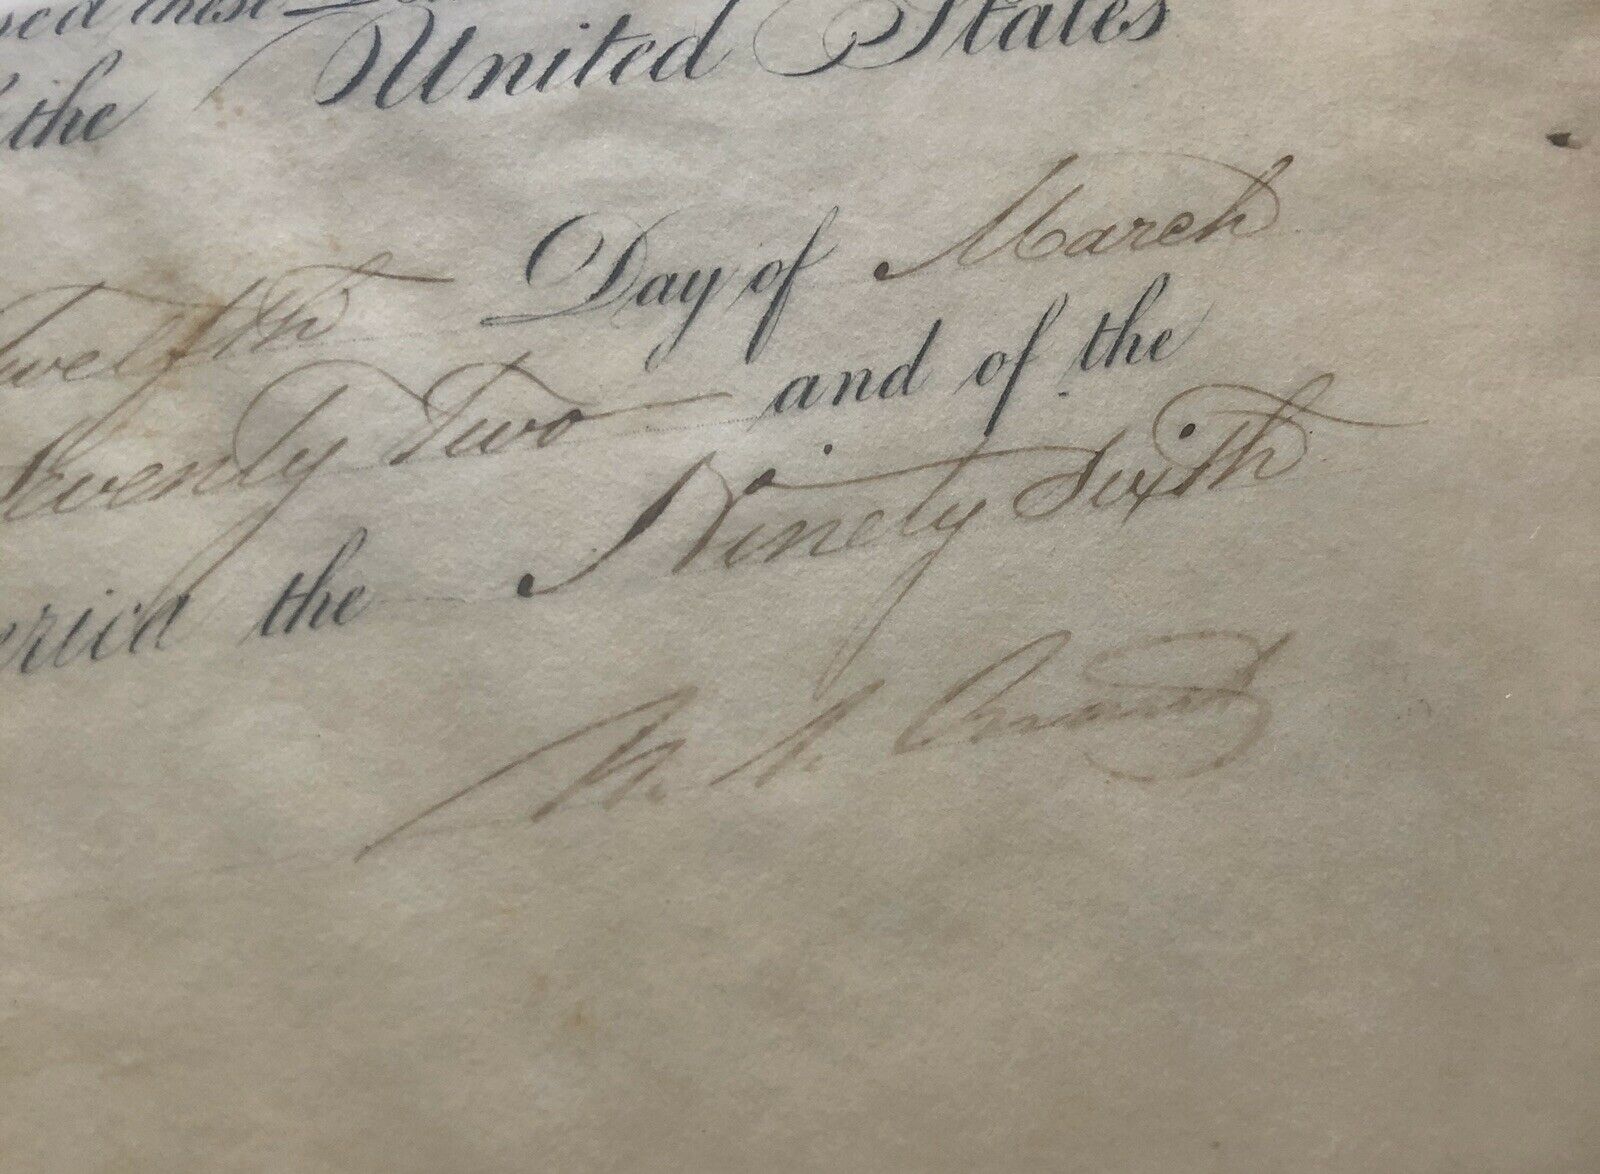 these
the United States
Twelfth Day of March
Seventy Two and of the
erica the Ninety Sixth